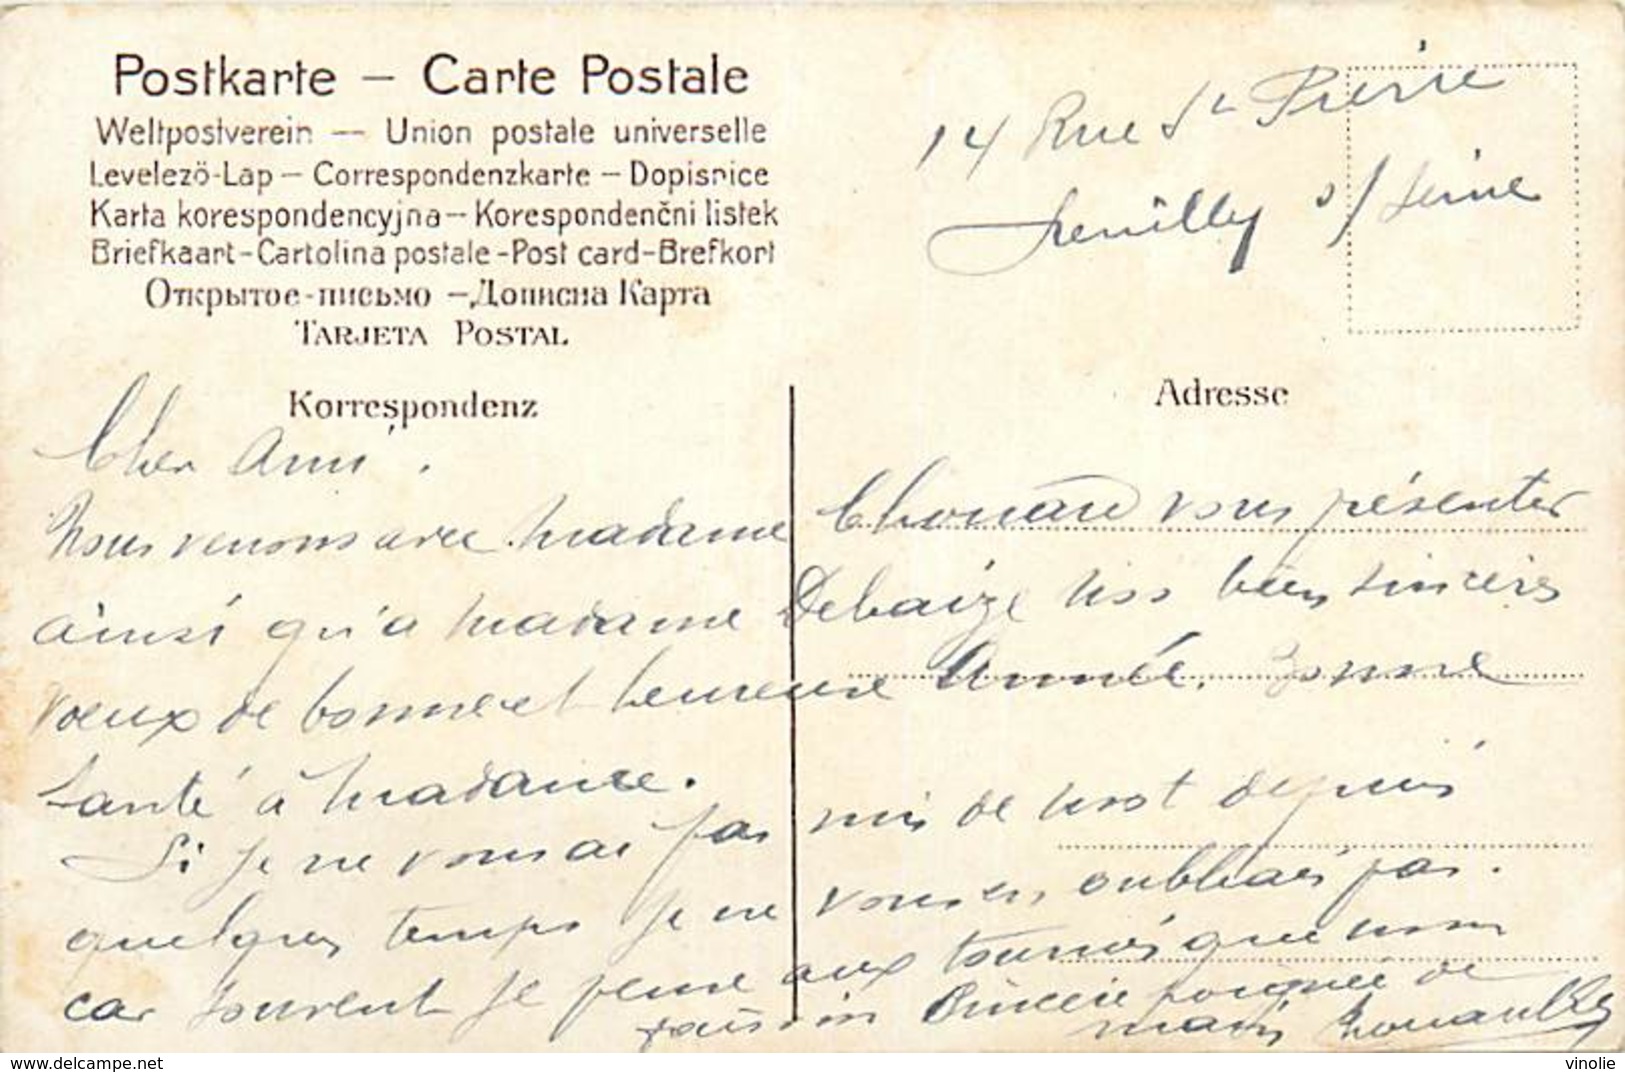 Postkarte – Carte Postale
Weltpostverein — Union postale universelle
Levelezö-Lap – Correspondenzkarte – Dopisnice
Karta korespondencyjna – Korespondenčni listek
Briefkaart-Cartolina postale-Post card-Brefkort
Открытое-письмо – Дописна Карта
TARJETA POSTAL
Korrespondenz
Adresse
14 Rue St Pierre
Neuilly s/ Seine
Cher Ami.
Nous venons avec Madame Chouard vous présenter
ainsi qu'a Madame Debaize nos bien sincères
voeux de bonne et heureuse Année. Bonne
Santé à Madame.
Si je ne vous ai pas mis de mot depuis
quelques temps je ne vous en oubliais pas.
car souvent je pense aux tournés que nous
faision Sincère poignée de
main
vinolie